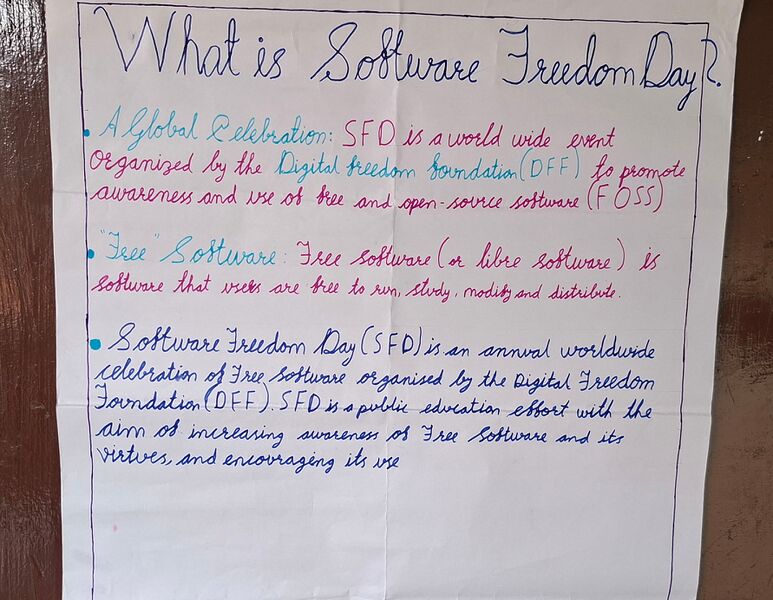 What is Software Freedom Day?
• A Global Celebration: SFD is a world wide event
Organized by the Digital freedom foundation (DFF) to promote
awareness and use of free and open-source software (FOSS)
• "Free" Software: Free software (or libre software) is
software that users are free to run, study, modify and distribute.
• Software Freedom Day (SFD) is an annual worldwide
celebration of Free Software organised by the Digital Freedom
Foundation (DFF). SFD is a public education effort with the
aim of increasing awareness of Free Software and its
Virtues, and encouraging its use